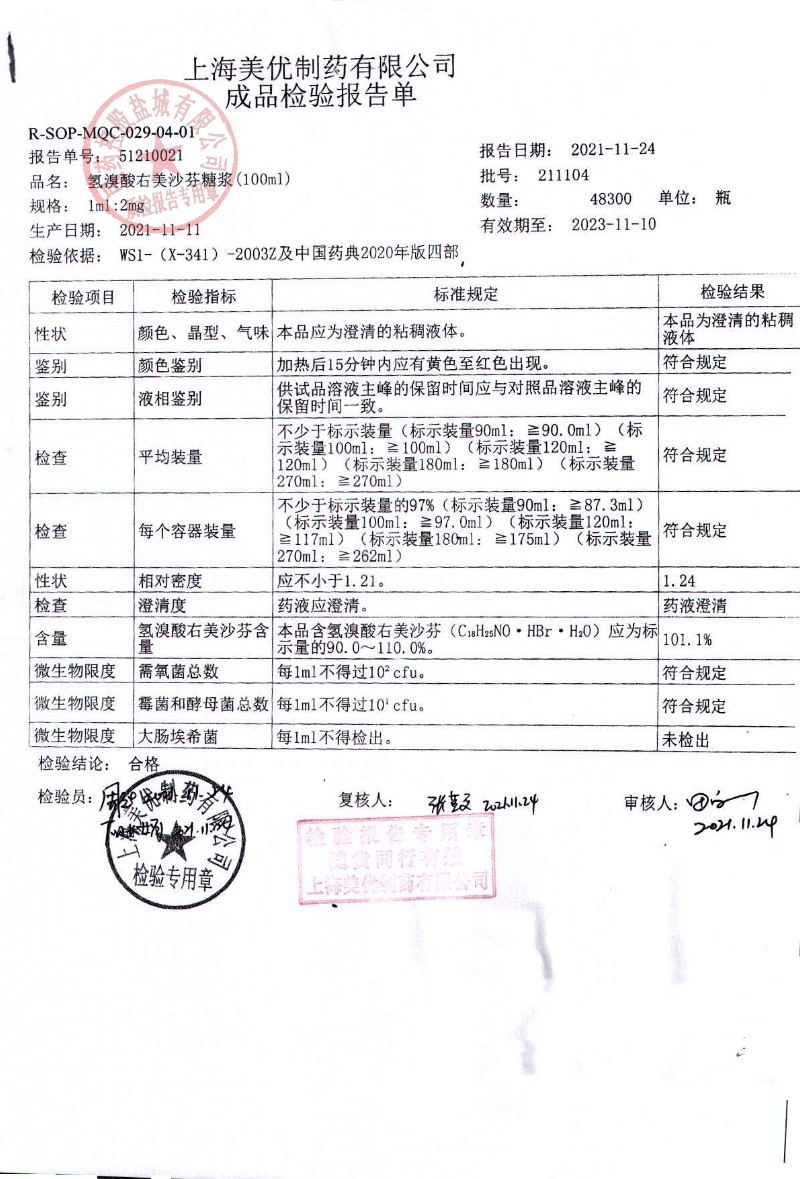 上海美优制药有限公司
成品检验报告单
R-SOP-MQC-029-04-01
报告单号: 51210021
报告日期: 2021-11-24
品名: 氢溴酸右美沙芬糖浆(100ml)
批号: 211104
规格: 1ml:2mg
数量: 48300 单位: 瓶
生产日期: 2021-11-11
有效期至: 2023-11-10
检验依据: WS1-(X-341)-2003Z及中国药典2020年版四部
检验项目 检验指标 标准规定 检验结果
性状 颜色、晶型、气味 本品应为澄清的粘稠液体。 本品为澄清的粘稠
液体
鉴别 颜色鉴别 加热后15分钟内应有黄色至红色出现。 符合规定
鉴别 液相鉴别 供试品溶液主峰的保留时间应与对照品溶液主峰的
保留时间一致。 符合规定
检查 平均装量 不少于标示装量(标示装量90ml: ≧90.0ml)(标
示装量100ml: ≧100ml)(标示装量120ml: ≧
120ml)(标示装量180ml: ≧180ml)(标示装量
270ml: ≧270ml) 符合规定
检查 每个容器装量 不少于标示装量的97%(标示装量90ml: ≧87.3ml)
(标示装量100ml: ≧97.0ml)(标示装量120ml:
≧117ml)(标示装量180ml: ≧175ml)(标示装量
270ml: ≧262ml) 符合规定
性状 相对密度 应不小于1.21。 1.24
检查 澄清度 药液应澄清。 药液澄清
含量 氢溴酸右美沙芬含
量 本品含氢溴酸右美沙芬(C₁₈H₂₅NO·HBr·H₂O)应为标
示量的90.0～110.0%。 101.1%
微生物限度 需氧菌总数 每1ml不得过10²cfu。 符合规定
微生物限度 霉菌和酵母菌总数 每1ml不得过10¹cfu。 符合规定
微生物限度 大肠埃希菌 每1ml不得检出。 未检出
检验结论: 合格
检验员:
复核人: 2021.11.24
审核人:
2021.11.24
上海美优制药有限公司
检验专用章
检验报告专用章
随货同行有效
上海美优制药有限公司
控股盐城有限公司
质检报告专用章